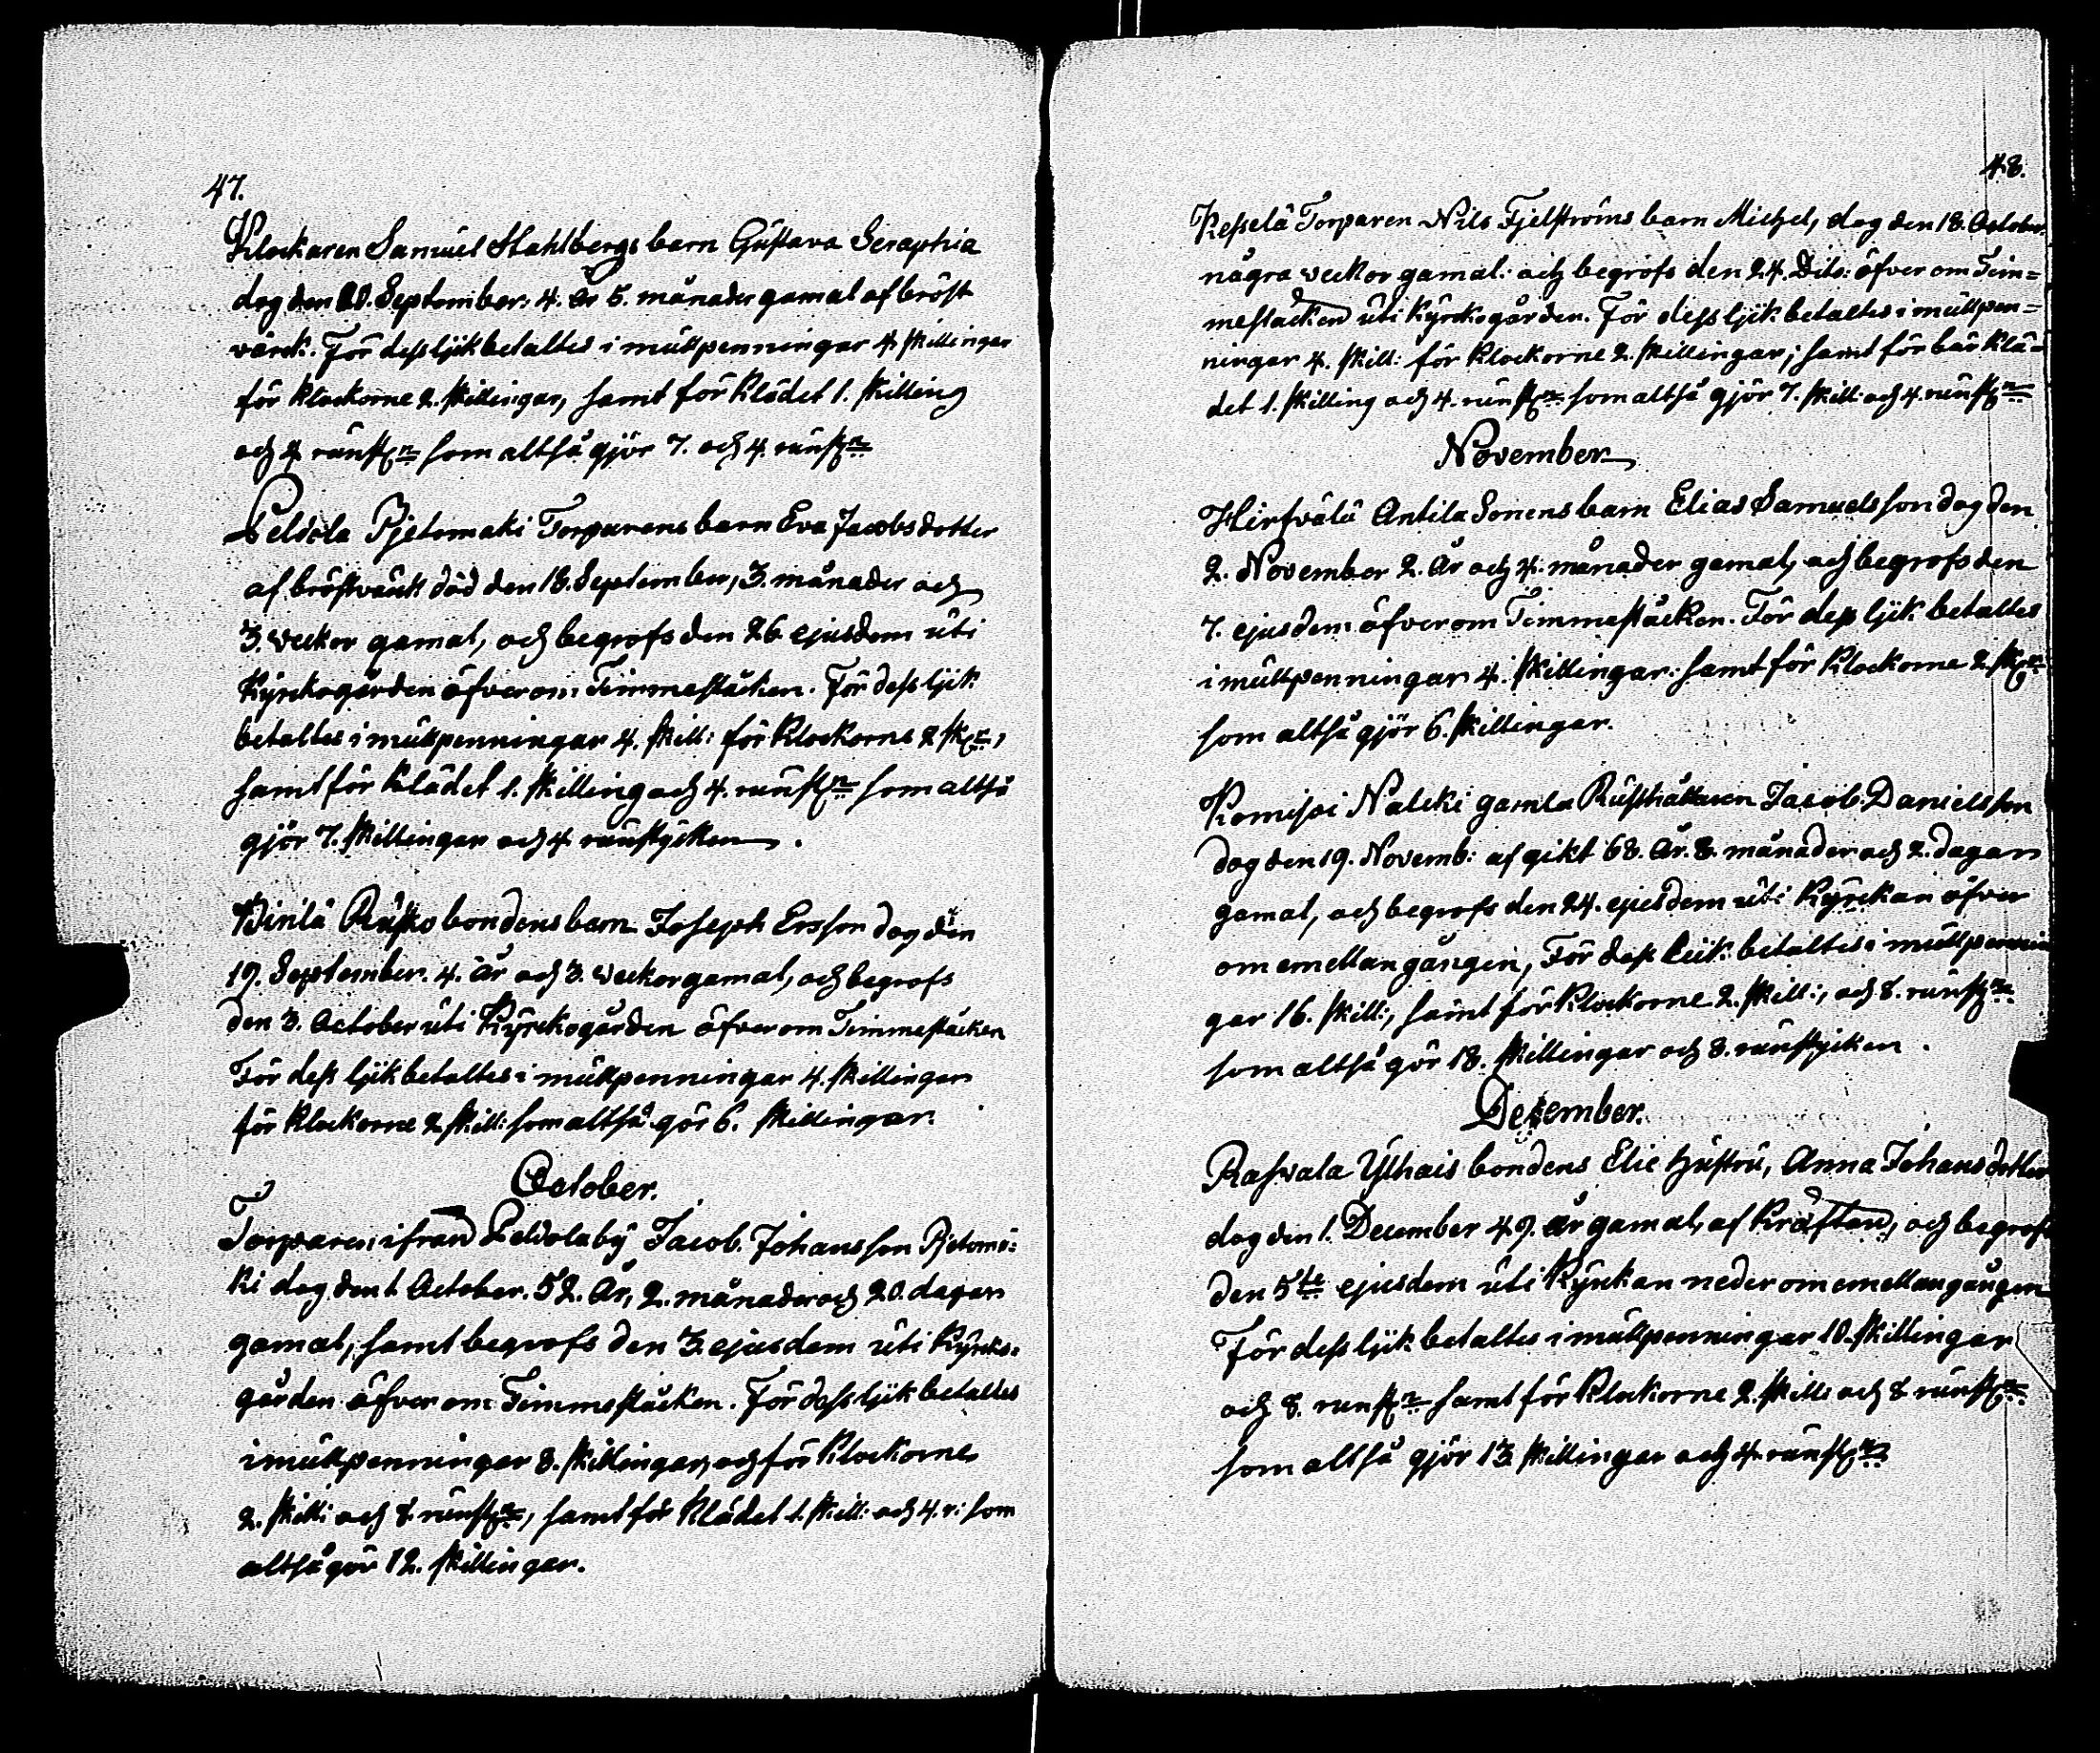 47.
Klockaren Samuel Stahlbergs barn Gustava Seraphia
dog den 20. September. 4. År 5. månader gamal af bröst
värck. För dess lijk betaltes i mullpenningar 4. skillingar
för klockorne 2. skillingar, samt för klädet 1. skilling
och 4 runst:n som altså gjör 7. och 4. runst:n
Peldola Pjetomaki Torparens barn Eva Jacobsdotter
af bröstvärck död den 18. September, 3. månader och
3. veckor gamal, och begrofs den 26. ejusdem uti
Kyrckogården öfver om Timmestäcken. För dess lijk
betaltes i mullpenningar 4. skill: för klockorne 2 sk:r,
samt för klädet 1. skilling och 4. runst:n som altså
gjör 7. skillingar och 4 runstycken.
Rusko bondens barn Joseph Ersson dog den
19. September. 4. år och 3. veckor gamal, och begrofs
den 3. October uti Kyrckogården öfver om Timmestäcken
För dess lijk betaltes i mullpenningar 4. skillingar
för klockorne 2 skill: som altså gör 6. skillingar.
October.
Torparen ifrån Peldolaby Jacob Johansson Pjetomä=
ki dog den 1 October. 52. År, 2. månader och 20. dagar
gamal, samt begrofs den 3. ejusdem uti Kyrcko=
gården öfver om Timmestäcken. För dess lijk betaltes
i mullpenningar 8. skillingar, och för klockorne
2. skill: och 8. runst:n, samt för klädet 1. skill: och 4. r: som
altså gör 12. skillingar.
48.
Kesselä Torparen Nils Fjelströms barn Michel, dog den 18. October.
några veckor gamal: och begrofs den 24. Dito: öfver om Tim=
mestacken uti Kyrckogården. För dess lijk betaltes i mullpen=
ningar 4. skill: för klockorne 2. skillingar; samt för bår klä=
det 1. skilling och 4. runst:n som altså gjör 7. skill: och 4. runst:n
November
Hirfvälä Antila Sonens barn Elias Samuelsson dog den
2. November 2. År och 4. månader gamal, och begrofs den
7. ejusdem öfver om Timmestäcken. För dess lijk betaltes
i mullpenningar 4. skillingar: samt för klockorne 2. sk:r
som altså gjör 6. skillingar.
Nalcki gamla Rusthållaren Jacob Danielsson
dog den 19. Novemb: af gikt 68. År. 8. månader och 2. dagar
gamal, och begrofs den 24. ejusdem uti Kyrckan öfver
om emellangången, För dess Liik betaltes i mullpennin
gar 16. skill:, samt för klockorne 2. skill:, och 8. runst:n
som altså gör 18. skillingar och 8. runstycken.
December.
Rahvala Ylhais bondens Elie hustru, Anna Johansdotter
dog den 1. December 49. år gamal, af Kräftan, och begrofs
den 5te ejusdem uti Kyrckan neder om emellangången
För dess lijk betaltes i mullpenningar 10. skillingar
och 8. runst:n samt för klockorne 2. skill: och 8 runst:n
som altså gjör 13 skillingar och 4. runst:n